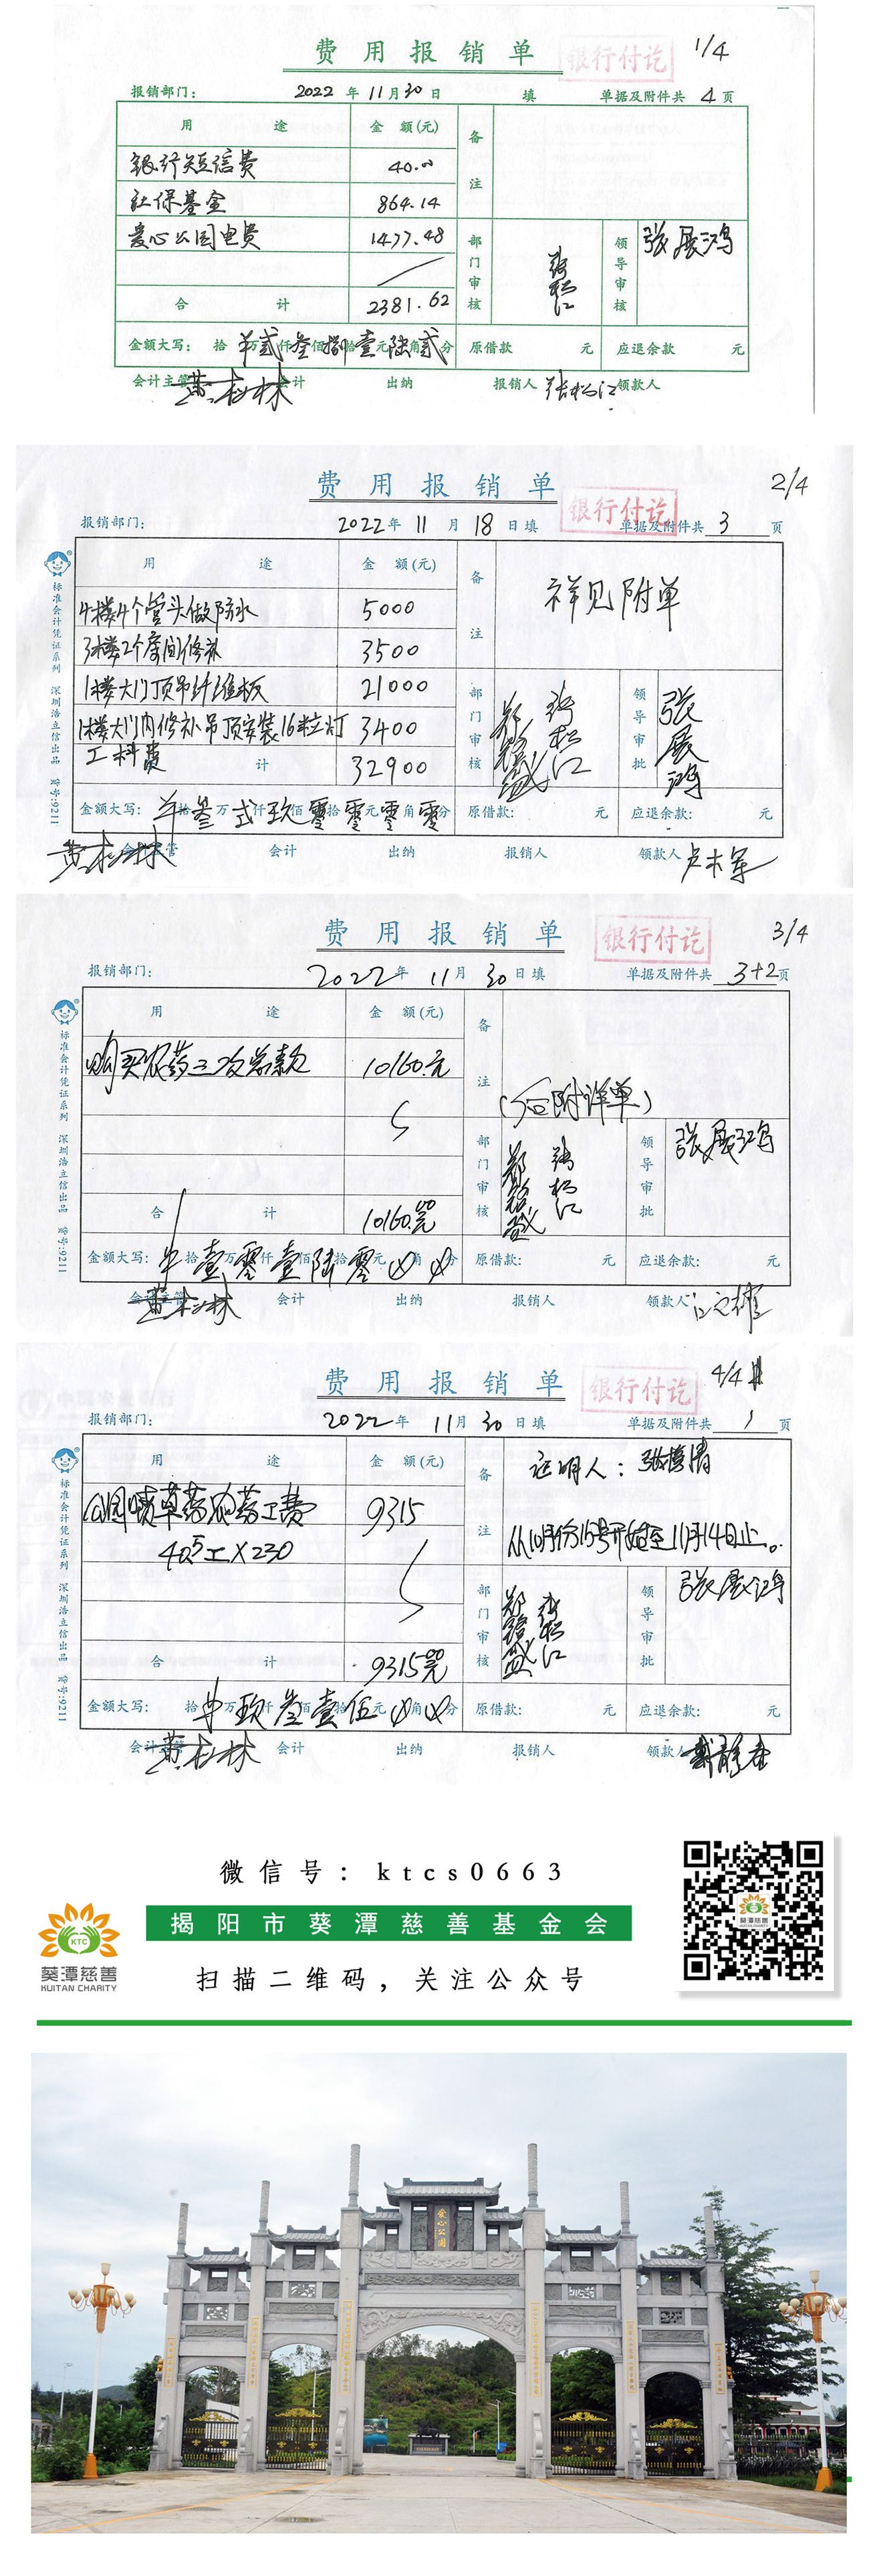 费用报销单
银行付讫
1/4
报销部门： 2022 年 11 月 30 日 填 单据及附件共 4 页
用 途 金 额(元) 备注
银行短信费 40.00
社保基金 864.14
爱心公园电费 1477.48
部门审核 张松江 领导审核 张展鸿
合 计 2381.62
金额大写： 拾 万贰仟叁佰捌拾壹元陆角贰分 原借款 元 应退余款 元
会计主管 黄松林 会计 出纳 报销人 张松江 领款人
费用报销单
银行付讫
2/4
报销部门： 2022 年 11 月 18 日填 单据及附件共 3 页
用 途 金 额(元) 备注 祥见附单
4楼4个管头做防水 5000
3楼2个房间修补 3500
1楼大门顶吊纤维板 21000
1楼大门内修补吊顶安装16粒灯 3400
工料费 计 32900
部门审核 张松江 领导审批 张展鸿
金额大写： 拾叁万贰仟玖佰零拾零元零角零分 原借款： 元 应退余款： 元
黄松林 会计主管 会计 出纳 报销人 领款人 卢木军
标准会计凭证系列 深圳浩立信出品 货号:9211
费用报销单
银行付讫
3/4
报销部门： 2022 年 11 月 30 日填 单据及附件共 3+2 页
用 途 金 额(元) 备注 (后附详单)
购买农药三次总款 10160元
部门审核 张松江 领导审批 张展鸿
合 计 10160元
金额大写： 拾壹万零仟壹佰陆拾零元 角 分 原借款： 元 应退余款： 元
会计主管 黄松林 会计 出纳 报销人 领款人
标准会计凭证系列 深圳浩立信出品 货号:9211
费用报销单
银行付讫
4/4
报销部门： 2022 年 11 月 30 日填 单据及附件共 1 页
用 途 金 额(元) 备注 证明人：
公园喷草药农药工费 9315
40.5工×230
从10月份15号开始至11月14日止。
部门审核 张松江 领导审批 张展鸿
合 计 9315元
金额大写： 拾 万玖仟叁佰壹拾伍元 角 分 原借款： 元 应退余款： 元
会计主管 黄松林 会计 出纳 报销人 领款人
标准会计凭证系列 深圳浩立信出品 货号:9211
微信号：ktcs0663
揭阳市葵潭慈善基金会
扫描二维码，关注公众号
KTC
葵潭慈善
KUITAN CHARITY
葵潭慈善
爱心公园